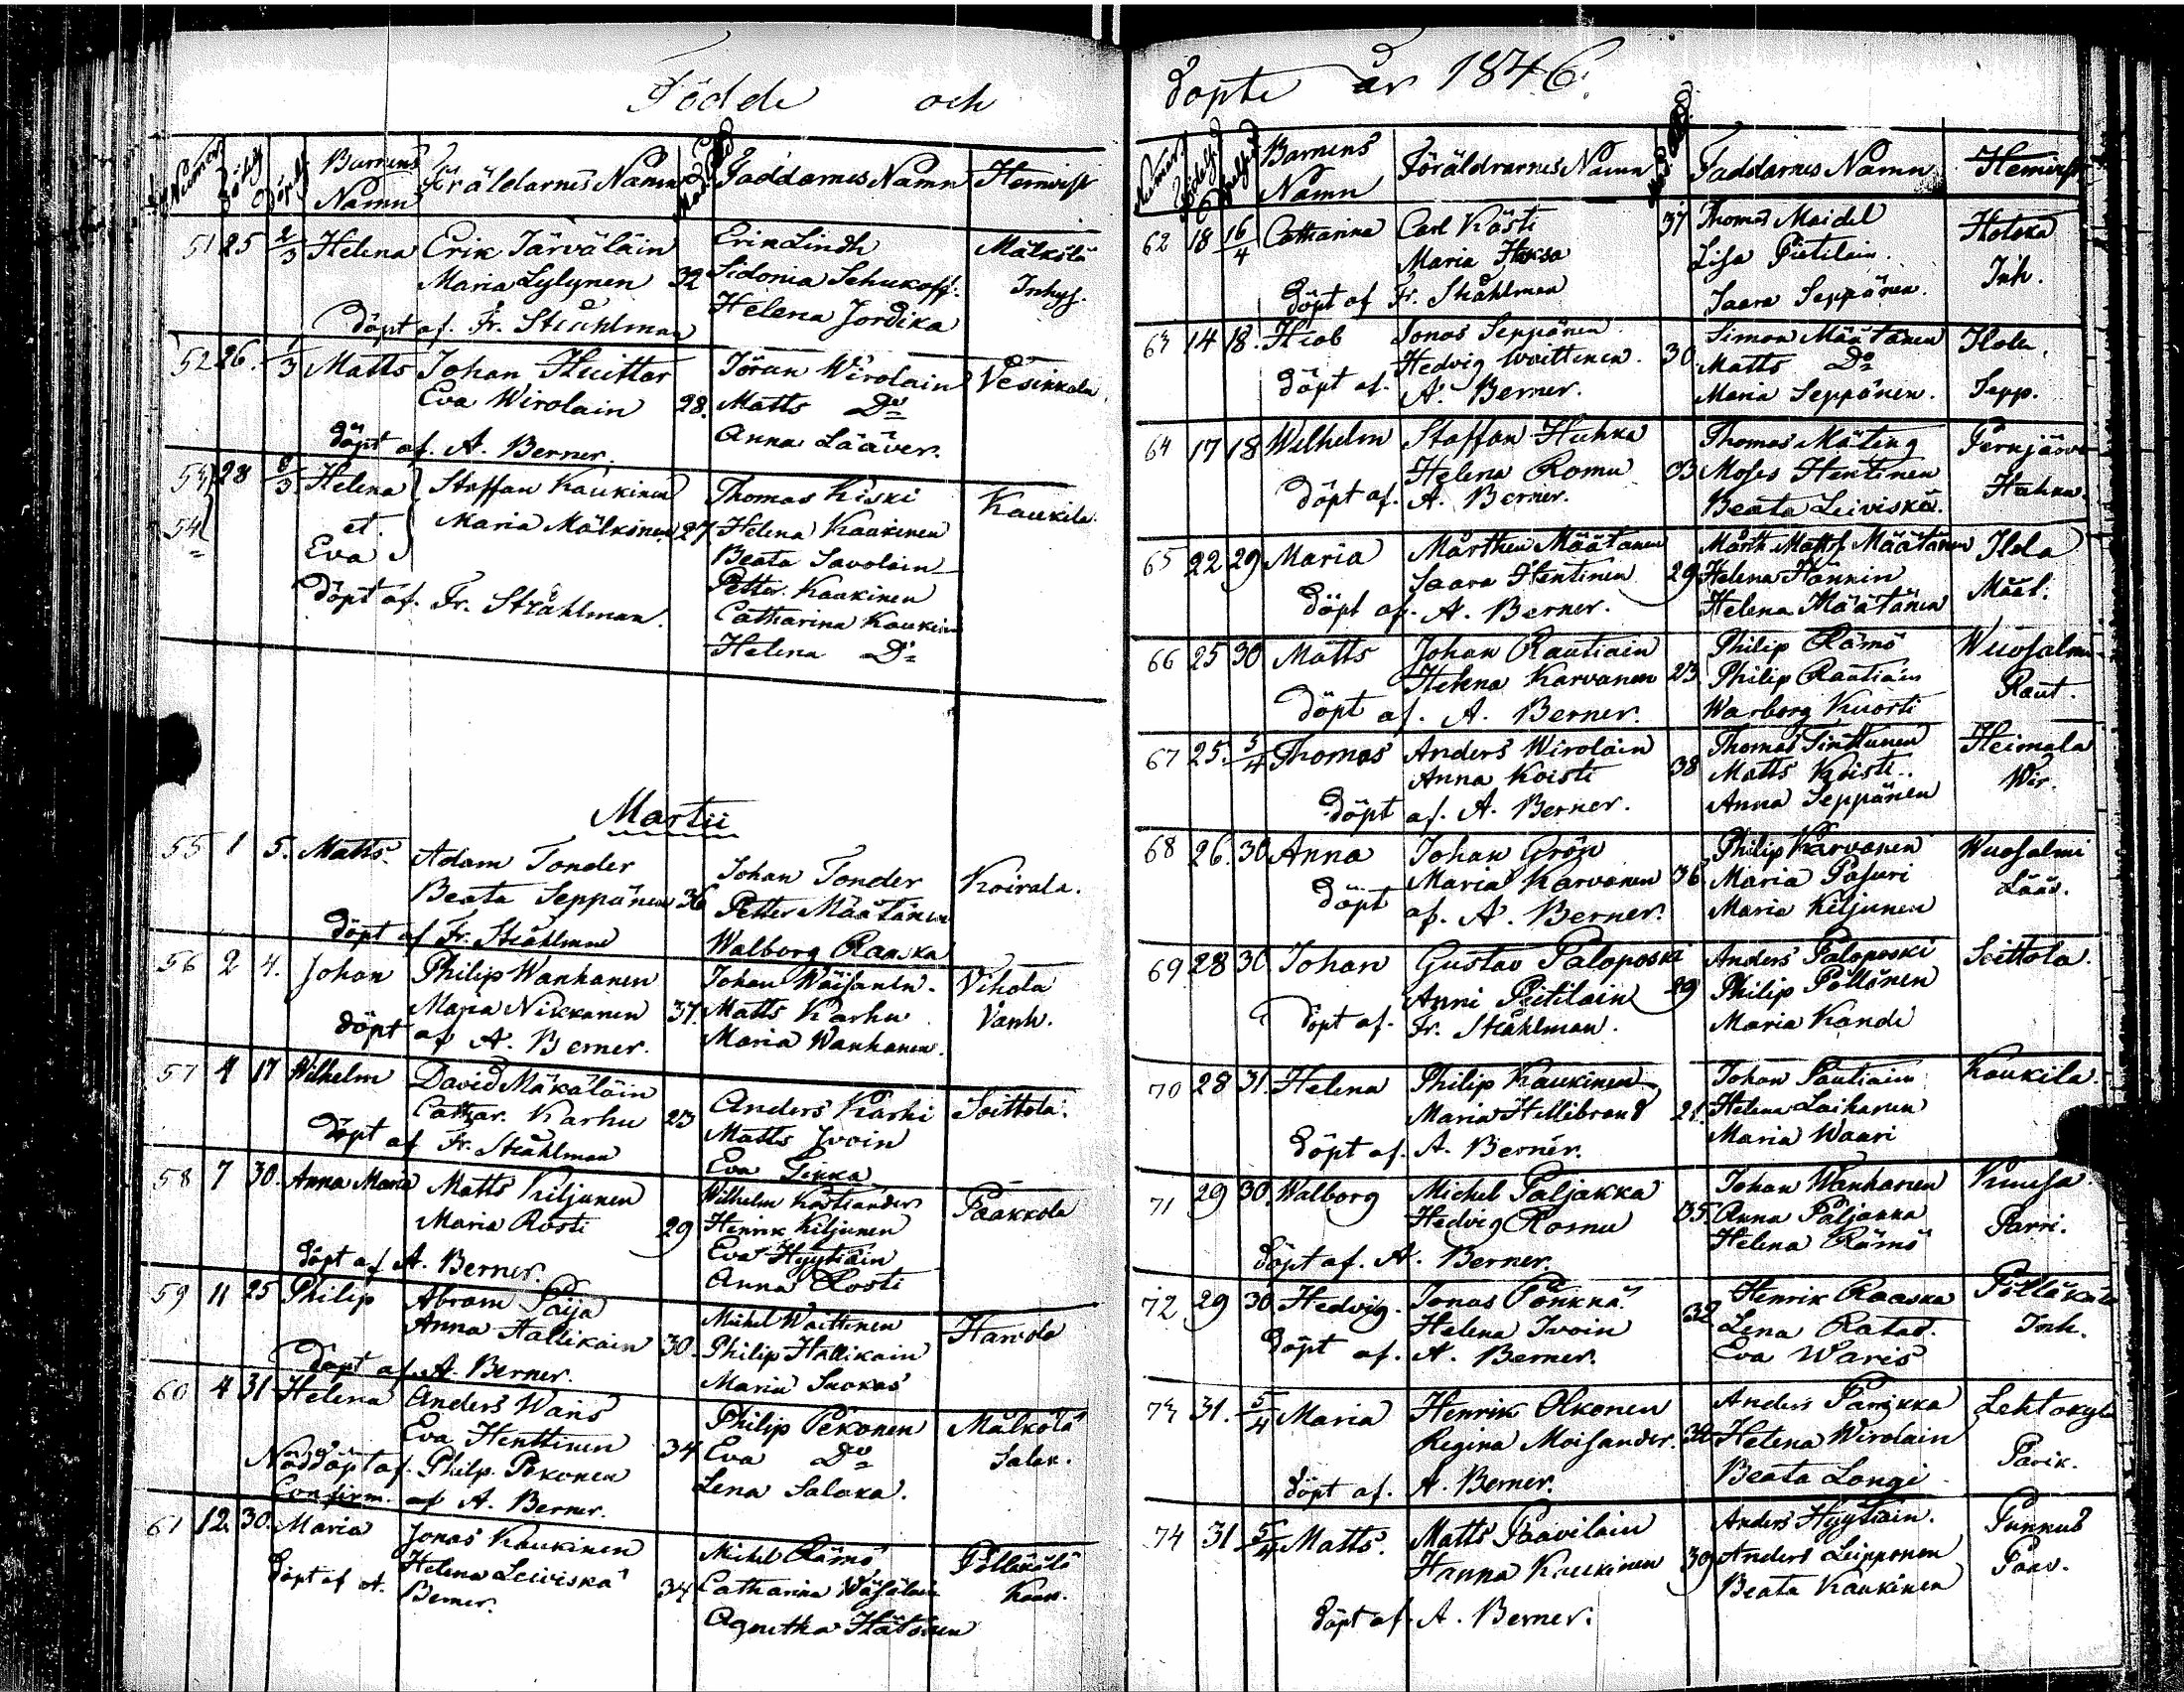 Födde och
Numer Födely Döpely Barnens Namn Föräldarnes Namn Faddarnes Namn Hemvist
51 25 2/3 Helena Erik Järväläin Erik Lindh Mälkölä
Maria Lylynen 32 Sidonia Schukoff. Inhys.
Döpt af. Fr. Stråhlman Helena Jordika
52 26. 1/3 Matts Johan Huittar Jöran Wirolain Vesikkala
Eva Wirolain 28. Matts Do
Döpt af. A. Berner. Anna Lääver.
53 28 8/3 Helena Staffan Kaukinen Thomas Kiski Kaukila.
54 et. Maria Mälkönen 27 Helena Kaukinen
Eva Beata Savolain
Petter. Kaukinen
Döpt af. Fr. Stråhlman. Catharina Kaukinen
Helena Do
Martii
55 1 5. Matts. Adam Tonder Johan Tonder Koirala.
Beata Seppänen 36 Petter Määtänen
Döpt af Fr. Stråhlman Walborg Raaska
56 2 4. Johan Philip Wanhanen Johan Wäisänen. Vihola
Maria Nikkanen 37. Matts Karhu Vanh.
Döpt af A. Berner. Maria Wanhanen.
57 4 17 Wilhelm David Mäkäläin Anders Karhi Soittola.
Cathar. Karhu 23 Matts Ivoin
Döpt af Fr. Stråhlman Eva Sikka
58 7 30. Anna Maria Matts Kiljunen Wilhelm Kostiander Paakkola
Maria Rosti 29 Henrik Kiljunen
Eva Hyytiäin
Döpt af A. Berner. Anna Rosti
59 11 25 Philip Abram Päijä Michel Woittinen Hanvola
Anna Hallikain 30. Philip Hallikain
Döpt af A. Berner. Maria Suokas
60 4 31 Helena Anders Waris Philip Pekonen Mälkölä
Eva Henttinen 34 Eva Do Salak.
Nöddöpt af. Philp. Pekonen Lena Salaka.
Confirm. af A. Berner.
61 12. 30. Maria Jonas Kaukinen Michel Rämö Pölläkälä
Helena Leiviskä 34 Catharina Kauk.
Döpt af A. Berner. Agnetha Hätönen
döpte år 1846.
Numer. Födely Döpely Barnens Namn Föräldrarnes Namn Faddarnes Namn Hemvist
62 18 16/4 Catharina Carl Kästi 37 Thomas Maidel Hotoka
Maria Haksa Lisa Pietilain. Inh.
Döpt af Fr. Stråhlman Saara Seppänen.
63 14 18. Hiob Jonas Seppänen Simon Määtänen Ilola.
Hedvig Woittinen. 30. Matts Do
Döpt af. A. Berner. Maria Seppänen. Sepp.
64 17 18 Wilhelm Staffan Huhka Thomas Mäting Pernjäärvi
Helena Romu 33 Moses Hentinen Huhka.
Döpt af. A. Berner. Beata Leiviskä.
65 22 29. Maria Mårthen Määtänen Mårth. Matts. Määtänen Ilola
Saara Hentinen 29 Helena Hännin Määt.
Döpt af. A. Berner. Helena Määtänen
66 25 30 Matts Johan Rautiain Philip Rämö Wuosalmi
Helena Karvanen 23. Philip Rautiain Raut.
Döpt af. A. Berner. Warborg Kuorti
67 25. 5/4 Thomas Anders Wirolain Thomas Sinttunen Heimala
Anna Koisti 38 Matts Koisti. Wir.
Döpt af. A. Berner. Anna Seppänen
68 26. 30. Anna Johan Grön Philip Karvanen Wuosalmi
Maria Karvanen 36. Maria Pasuri Lääv.
Döpt af. A. Berner. Maria Kiljunen
69 28 30 Johan Gustav Paloposki Anders Paloposki Soittola.
Anni Pietilain 29 Philip Pöllönen
Döpt af. Fr. Stråhlman. Maria Kandi
70 28 31. Helena Philip Kaukinen Johan Rautiain Kaukila.
Maria Hillibrand 21. Helena Laihanen
Döpt af. A. Berner. Maria Waari
71 29 30. Walborg Michel Paljakka Johan Wanhanen Kuusa.
Hedvig Romu 35. Anna Paljakka Parri.
Döpt af. A. Berner. Helena Rämö
72 29 30. Hedvig. Jonas Pönkkä. Henrik Raaska Pölläkälä
Helena Ivoin 32 Lena Ratas. Inh.
Döpt af. A. Berner. Eva Waris
73 31. 5/4 Maria Henrik Olkonen Anders Parikka Lehtokylä
Regina Moisander. 32 Helena Wirolain Parik.
Döpt af. A. Berner. Beata Longi
74 31 5/4 Matts. Matts Paavilain Anders Hyytiäin. Punnus
Hanna Kaukinen 39 Anders Leipponen Paav.
Beata Kaukinen
Döpt af. A. Berner.